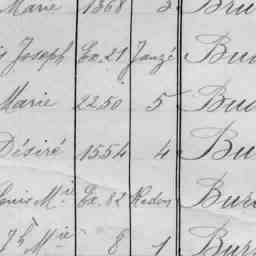 Marie 1368 3 Bru
Joseph Ex. 21 Janzé Bu
Marie 2250 5 Bu
Désiré 1554 4 Bu
Louis M. Ex. 82 Redon Bur
Jh Mie 8 1 Bur